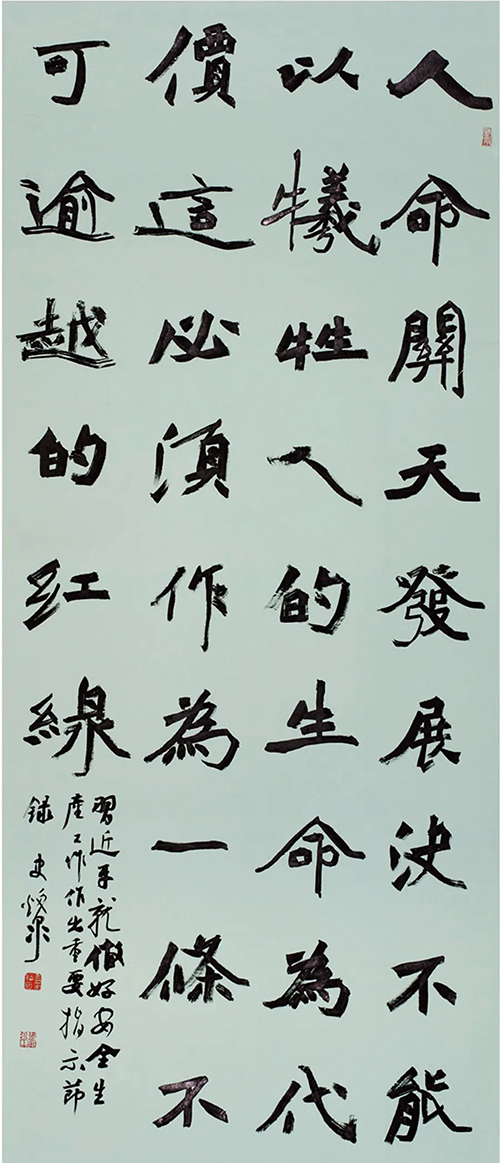 人命關天發展決不能
以犧牲人的生命為代
價這必須作為一條不
可逾越的红線
習近平就做好安全生
產工作作出重要指示節
録 史焕泉